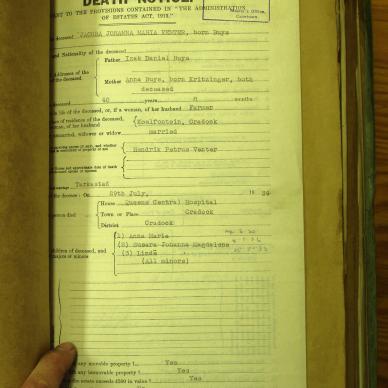 DEATH NOTICE.
ANT TO THE PROVISIONS CONTAINED IN "THE ADMINISTRATION
OF ESTATES ACT, 1913."
the deceased JACOBA JOHANNA MARIA VENTER, born Buys
and Nationality of the deceased
Father Izak Daniel Buys
Addresses of the
of the deceased
Mother Anna Buys, born Kritzinger, both
deceased
deceased 40 years 8 months
in life of the deceased, or, if a woman, of her husband Farmer
of residence of the deceased,
woman, of her husband
Koelfontein, Cradock
unmarried, widower or widow married
Hendrik Petrus Venter
marriage Tarkastad
of the decease: On 29th July, 19 39
House Queens Central Hospital
person died Town or Place Cradock
District Cradock
children of deceased, and
majors or minors
1) Anna Maria
(2) Susara Johanna Magdalena
(3) Linda
(All minors)
any movable property? Yes
any immovable property? Yes
the estate exceeds £300 in value? Yes